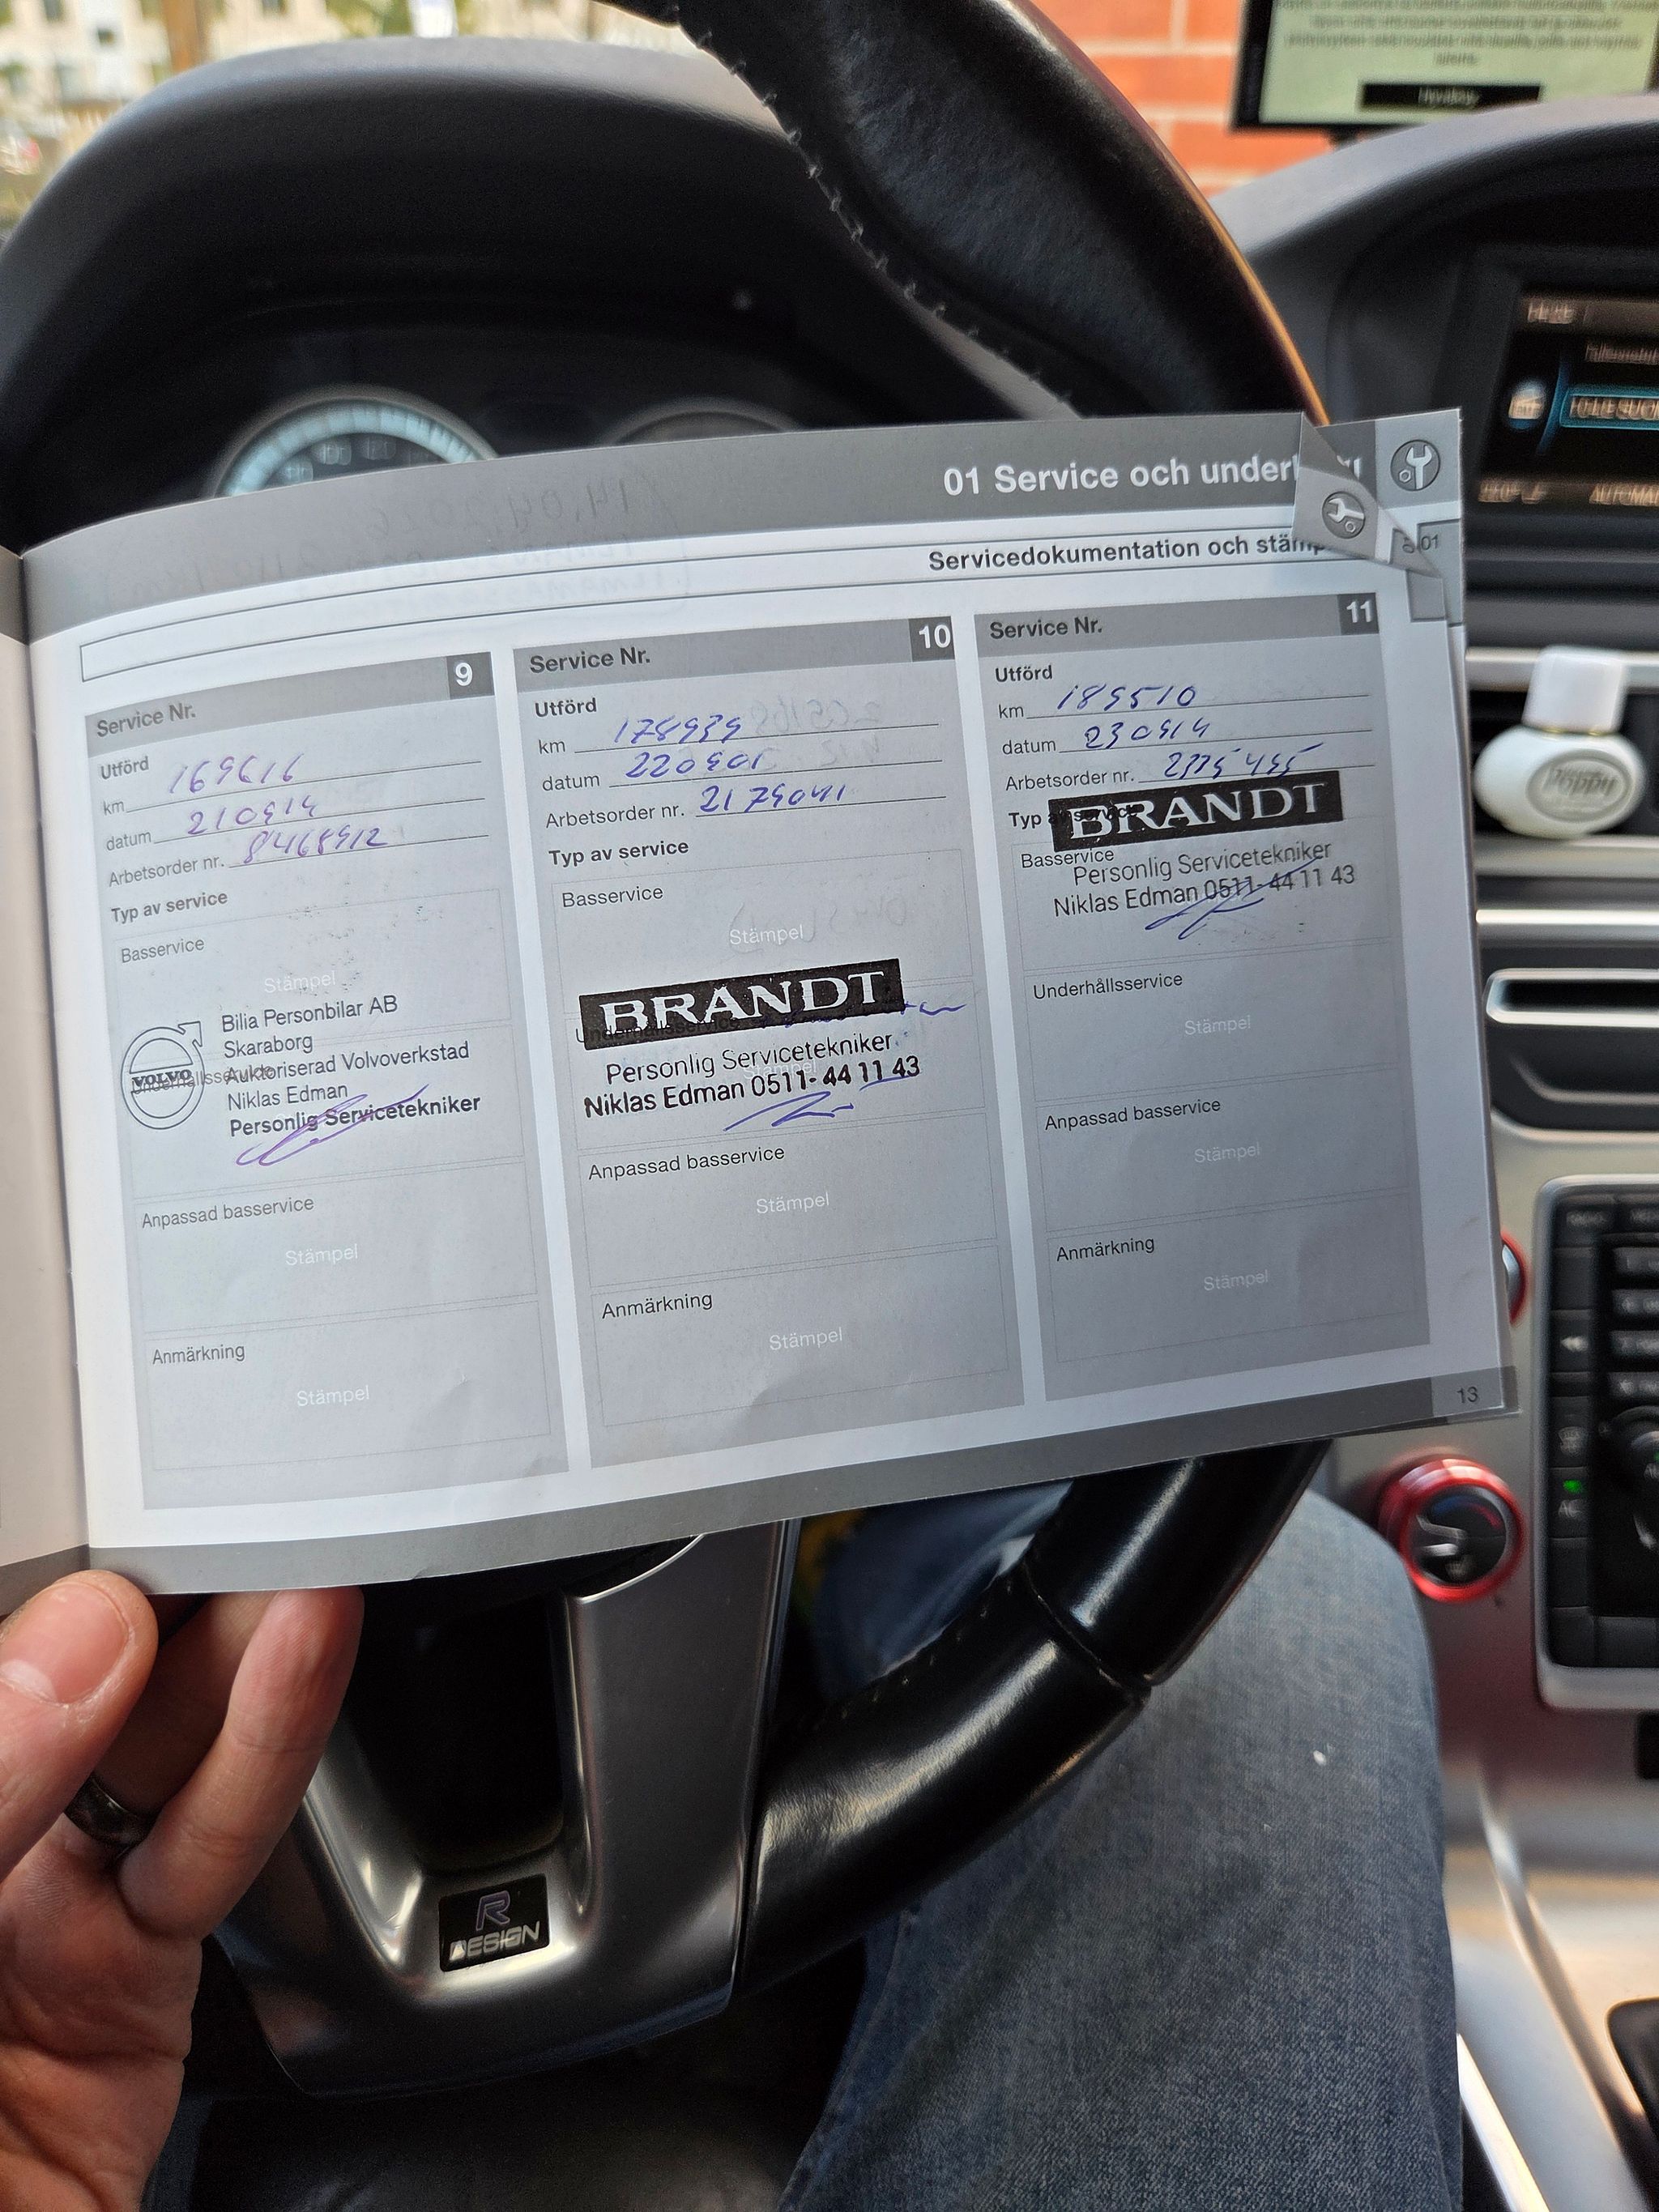 01 Service och under
Servicedokumentation och stäm
01
Service Nr. 9
Utförd
km 169616
datum 210914
Arbetsorder nr. 8468912
Typ av service
Basservice
Stämpel
VOLVO
Bilia Personbilar AB
Skaraborg
Auktoriserad Volvoverkstad
Niklas Edman
Personlig Servicetekniker
Underhållsservice
Anpassad basservice
Stämpel
Anmärkning
Stämpel
Service Nr. 10
Utförd
km 178939
datum 220901
Arbetsorder nr. 2179041
Typ av service
Basservice
Stämpel
Underhållsservice
BRANDT
Personlig Servicetekniker
Niklas Edman 0511-44 11 43
Anpassad basservice
Stämpel
Anmärkning
Stämpel
Service Nr. 11
Utförd
km 189510
datum 230914
Arbetsorder nr.
Typ av service
BRANDT
Basservice
Personlig Servicetekniker
Niklas Edman 0511-44 11 43
Underhållsservice
Stämpel
Anpassad basservice
Stämpel
Anmärkning
Stämpel
13
Poppy
AUTOMA
AC
R
DESIGN